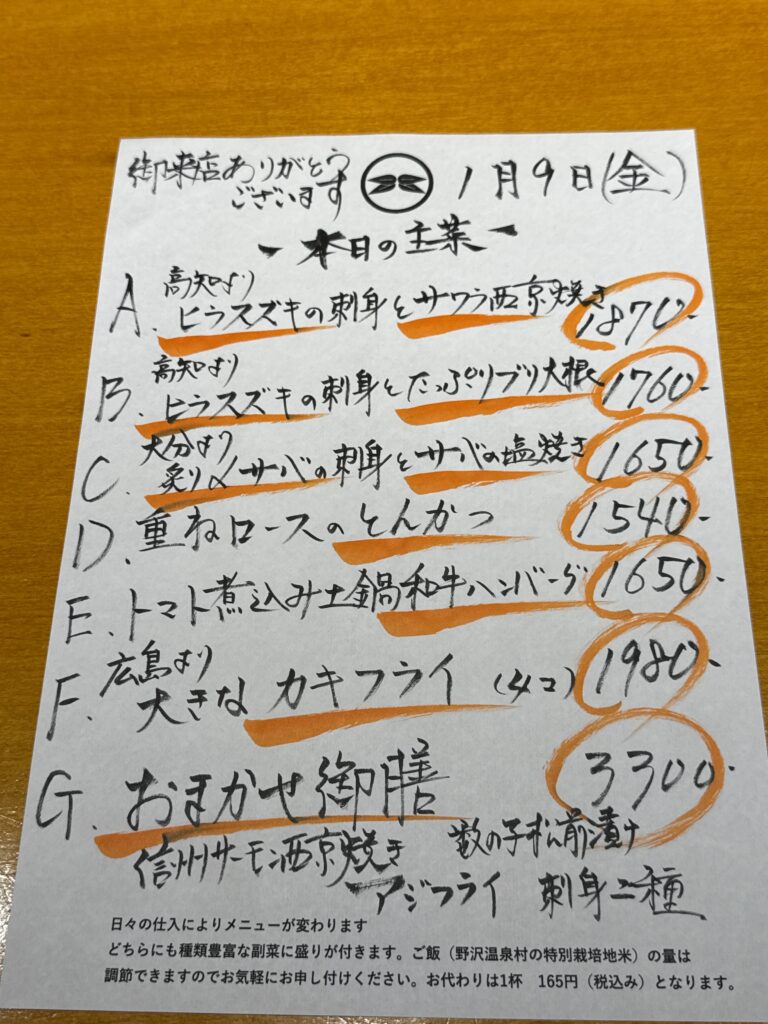 御来店ありがとう
ございます
1月9日(金)
本日の主菜
A. 高知より
ヒラスズキの刺身とサワラ西京焼き 1870-
B. 高知より
ヒラスズキの刺身とたっぷりブリ大根 1760-
C. 大分より
炙り〆サバの刺身とサバの塩焼き 1650-
D. 重ねロースのとんかつ 1540-
E. トマト煮込み土鍋和牛ハンバーグ 1650-
F. 広島より
大きなカキフライ (4コ) 1980-
G. おまかせ御膳 3300-
信州サーモン西京焼き 数の子松前漬け
アジフライ 刺身二種
日々の仕入によりメニューが変わります
どちらにも種類豊富な副菜に盛りが付きます。ご飯（野沢温泉村の特別栽培地米）の量は
調節できますのでお気軽にお申し付けください。お代わりは1杯 165円（税込み）となります。